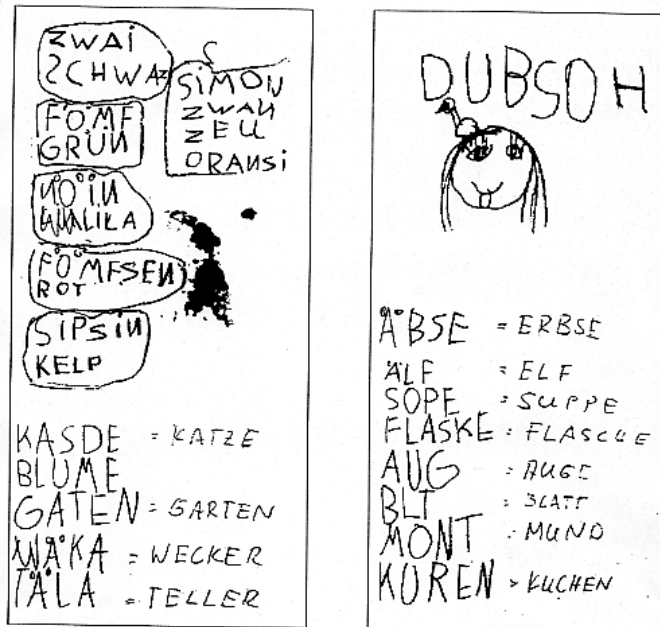 ZWAI
SCHWAZ
SIMON
ZWAN
ZEU
ORANSI
FÖMF
GRÜN
NÖIN
LILA
FÖMFSEN
ROT
SIPSIN
KELP
KASDE = KATZE
BLUME
GATEN = GARTEN
WÄKA = WECKER
TÄLA = TELLER
DUBSOH
ÄBSE = ERBSE
ÄLF = ELF
SOPE = SUPPE
FLASKE = FLASCHE
AUG = AUGE
BLT = BLATT
MONT = MUND
KUREN = KUCHEN